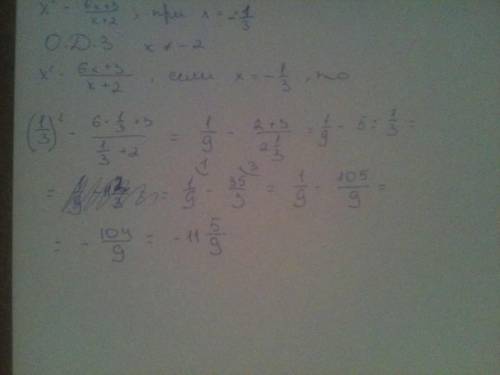 x² - (6x+3)/(x+2), при x = -1/3
О.Д.З x ≠ -2
x² - (6x+3)/(x+2), если x = -1/3, то
(1/3)² - (6·1/3+3)/(1/3+2) = 1/9 - (2+3)/(2 1/3) = 1/9 - 5 : 1/3 =
= 1/9 - 35/3 = 1/9 - 105/9 =
= - 104/9 = -11 5/9